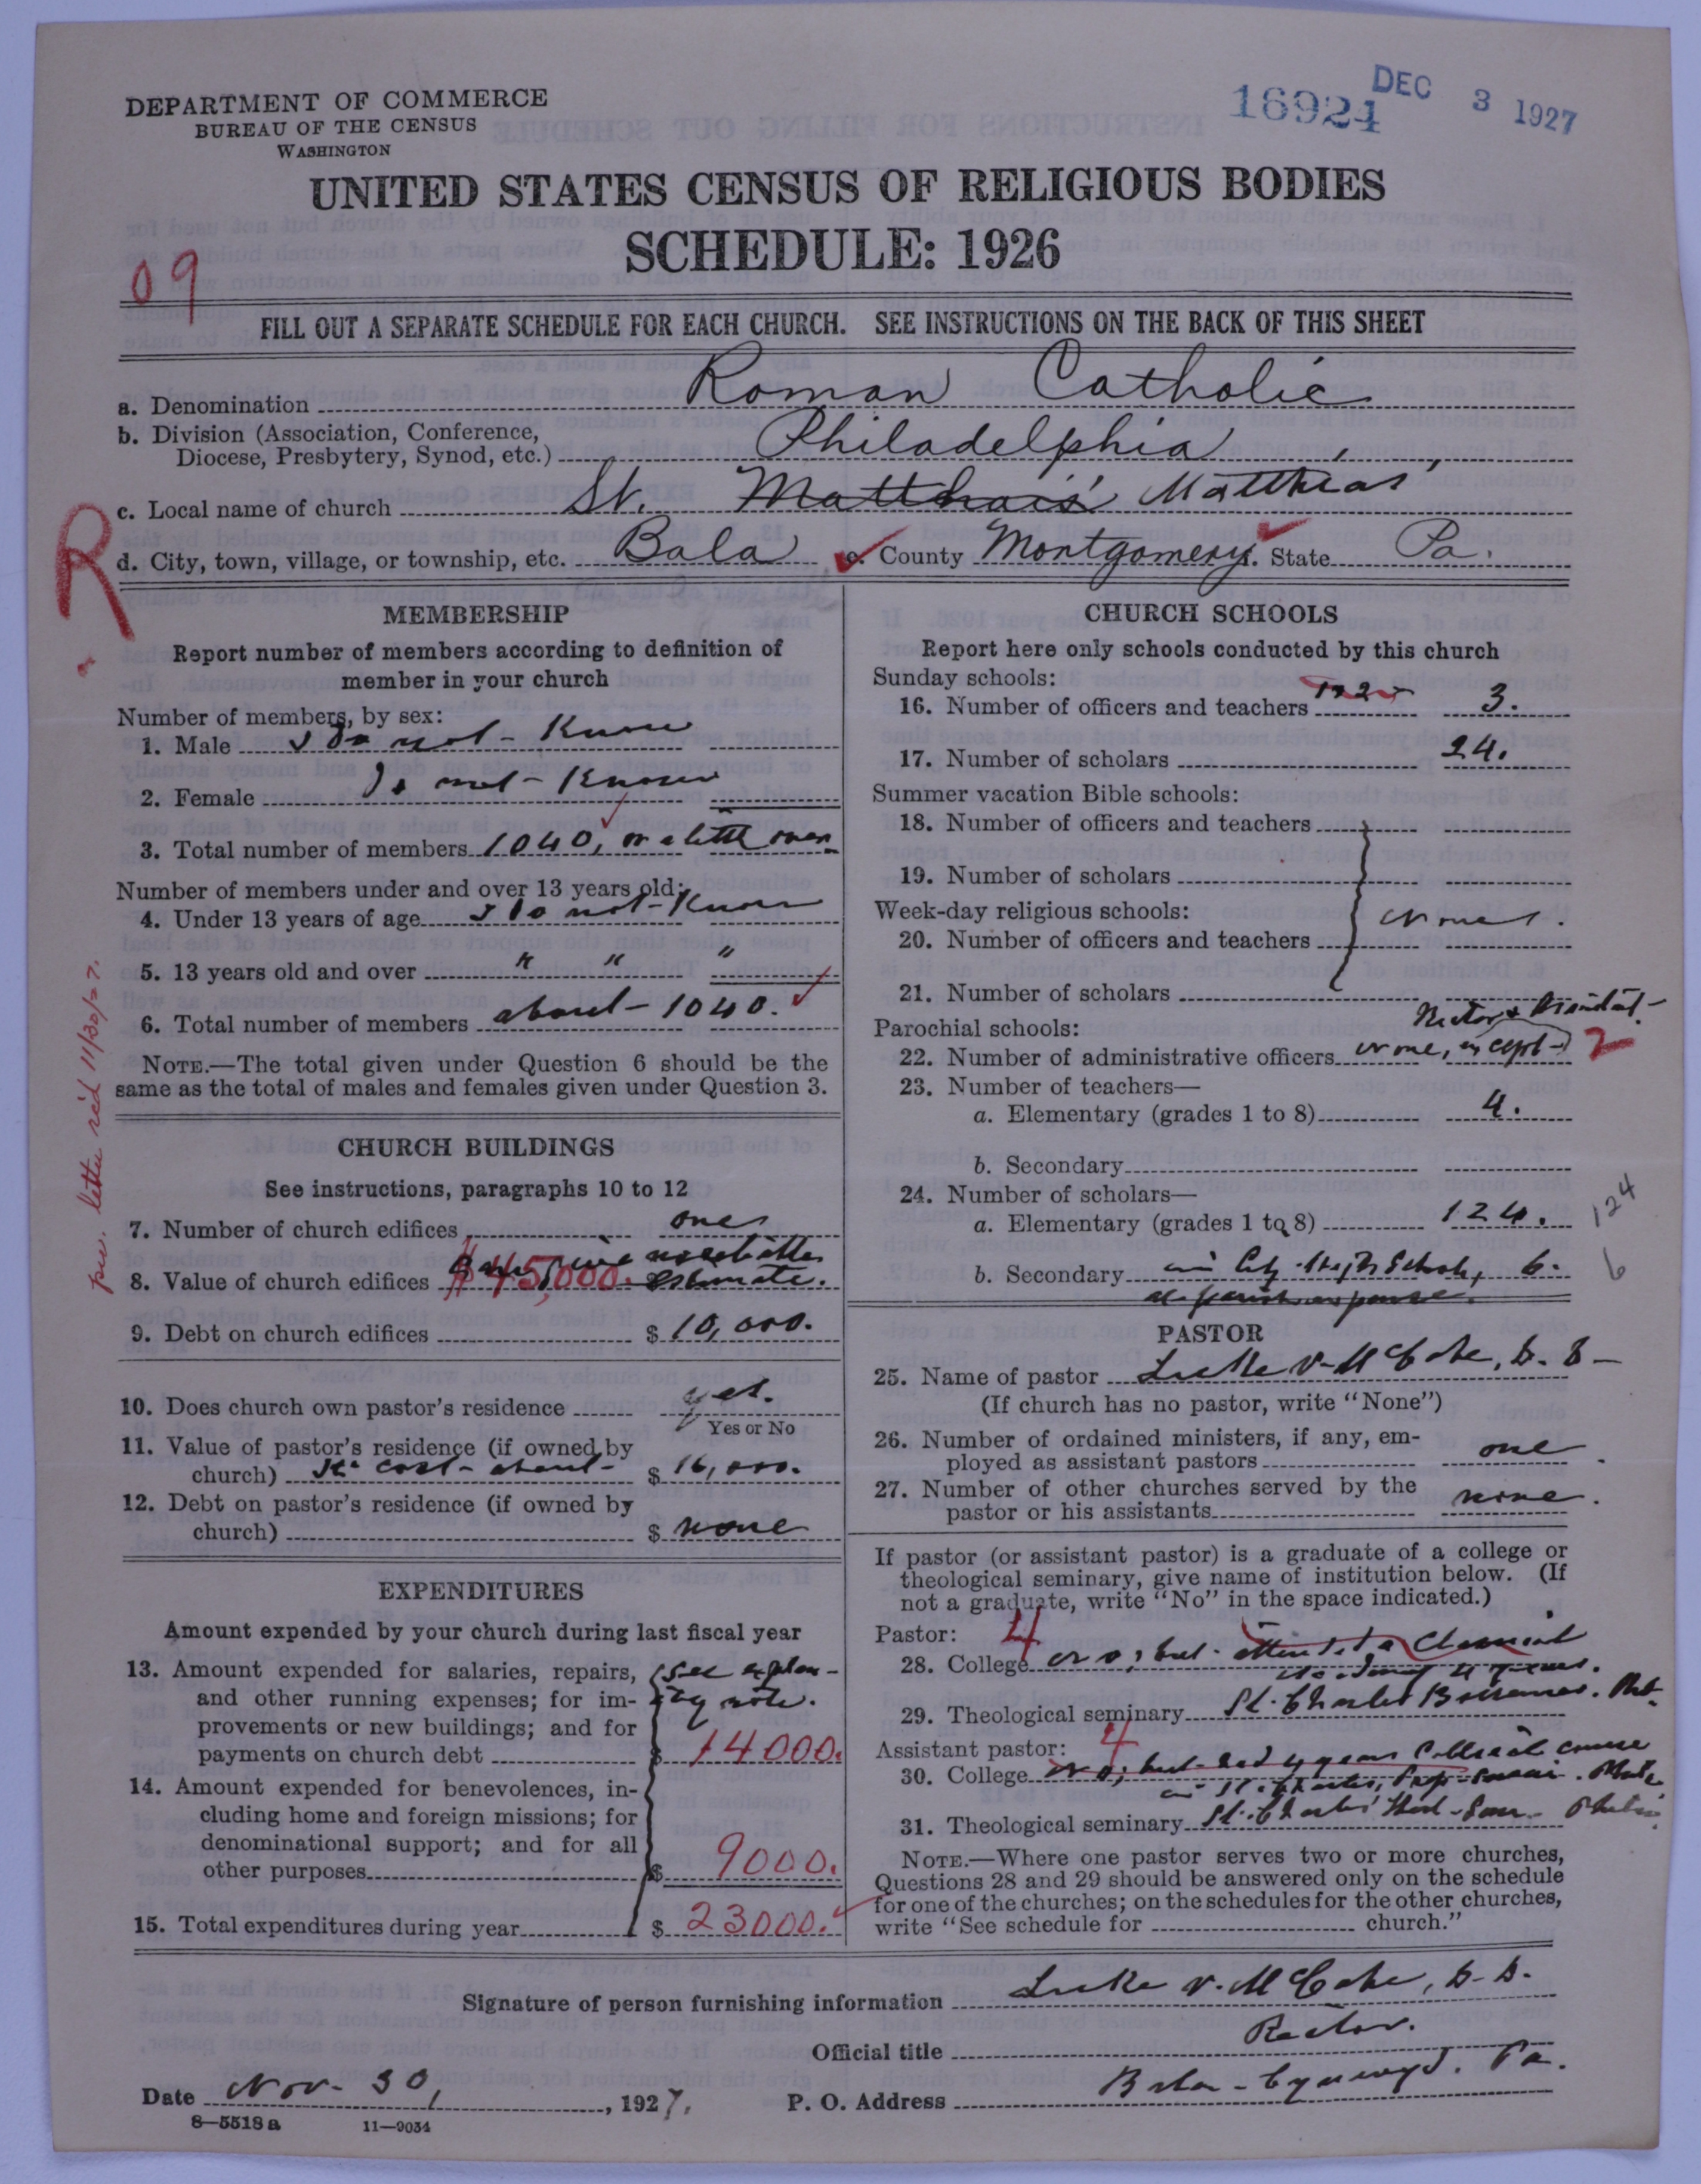 DEPARTMENT OF COMMERCE
BUREAU OF THE CENSUS
WASHINGTON
16924 DEC 3 1927
UNITED STATES CENSUS OF RELIGIOUS BODIES
SCHEDULE: 1926
09
FILL OUT A SEPARATE SCHEDULE FOR EACH CHURCH. SEE INSTRUCTIONS ON THE BACK OF THIS SHEET
a. Denomination Roman Catholic
b. Division (Association, Conference,
Diocese, Presbytery, Synod, etc.) Philadelphia
c. Local name of church St. Matthais' Matthias'
R
d. City, town, village, or township, etc. Bala e. County Montgomery f. State Pa.
MEMBERSHIP
Report number of members according to definition of
member in your church
Number of members, by sex:
1. Male I do not know
2. Female Do not know
3. Total number of members 1040, or a little over
Number of members under and over 13 years old:
4. Under 13 years of age I do not know
5. 13 years old and over " " "
6. Total number of members about 1040.
NOTE.—The total given under Question 6 should be the
same as the total of males and females given under Question 3.
per. letter rec'd 11/30/27.
CHURCH BUILDINGS
See instructions, paragraphs 10 to 12
7. Number of church edifices one
8. Value of church edifices $45,000. give estimate.
9. Debt on church edifices $ 10,000.
10. Does church own pastor's residence yes.
Yes or No
11. Value of pastor's residence (if owned by
church) It cost about $ 16,000.
12. Debt on pastor's residence (if owned by
church) $ none
EXPENDITURES
Amount expended by your church during last fiscal year
13. Amount expended for salaries, repairs, See explan-
and other running expenses; for im- note.
provements or new buildings; and for
payments on church debt $ 14000.
14. Amount expended for benevolences, in-
cluding home and foreign missions; for
denominational support; and for all
other purposes $ 9000.
15. Total expenditures during year $ 23000.
CHURCH SCHOOLS
Report here only schools conducted by this church
Sunday schools:
16. Number of officers and teachers 3.
17. Number of scholars 24.
Summer vacation Bible schools:
18. Number of officers and teachers
19. Number of scholars
Week-day religious schools: None.
20. Number of officers and teachers
21. Number of scholars
Rector & Assistant
Parochial schools:
22. Number of administrative officers None, except 2
23. Number of teachers—
a. Elementary (grades 1 to 8) 4.
b. Secondary
24. Number of scholars—
a. Elementary (grades 1 to 8) 124. 124
b. Secondary in City High Schools, 6. 6
at parish expense.
PASTOR
25. Name of pastor Luke V. McCabe, D. D.
(If church has no pastor, write "None")
26. Number of ordained ministers, if any, em-
ployed as assistant pastors one
27. Number of other churches served by the
pastor or his assistants none.
If pastor (or assistant pastor) is a graduate of a college or
theological seminary, give name of institution below. (If
not a graduate, write "No" in the space indicated.)
Pastor: 4
28. College No; but attended a Classical
Academy 4 years.
29. Theological seminary St. Charles Borromeo. Phil.
Assistant pastor: 4
30. College No; but had 4 years Collegiate course
in St. Charles, Prep. Phila.
31. Theological seminary St. Charles' Theol. Sem. Phila.
NOTE.—Where one pastor serves two or more churches,
Questions 28 and 29 should be answered only on the schedule
for one of the churches; on the schedules for the other churches,
write "See schedule for church."
Signature of person furnishing information Luke V. McCabe, D. D.
Official title Rector.
Date Nov. 30, , 1927. P. O. Address Bala-Cynwyd. Pa.
8—5518 a 11—9034